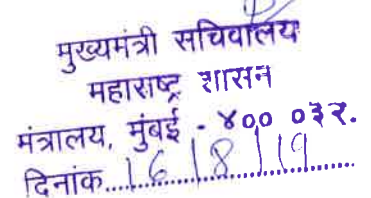 मुख्यमंत्री सचिवालय
महाराष्ट्र शासन
मंत्रालय, मुंबई - ४०० ०३२.
दिनांक....16/8/19..............